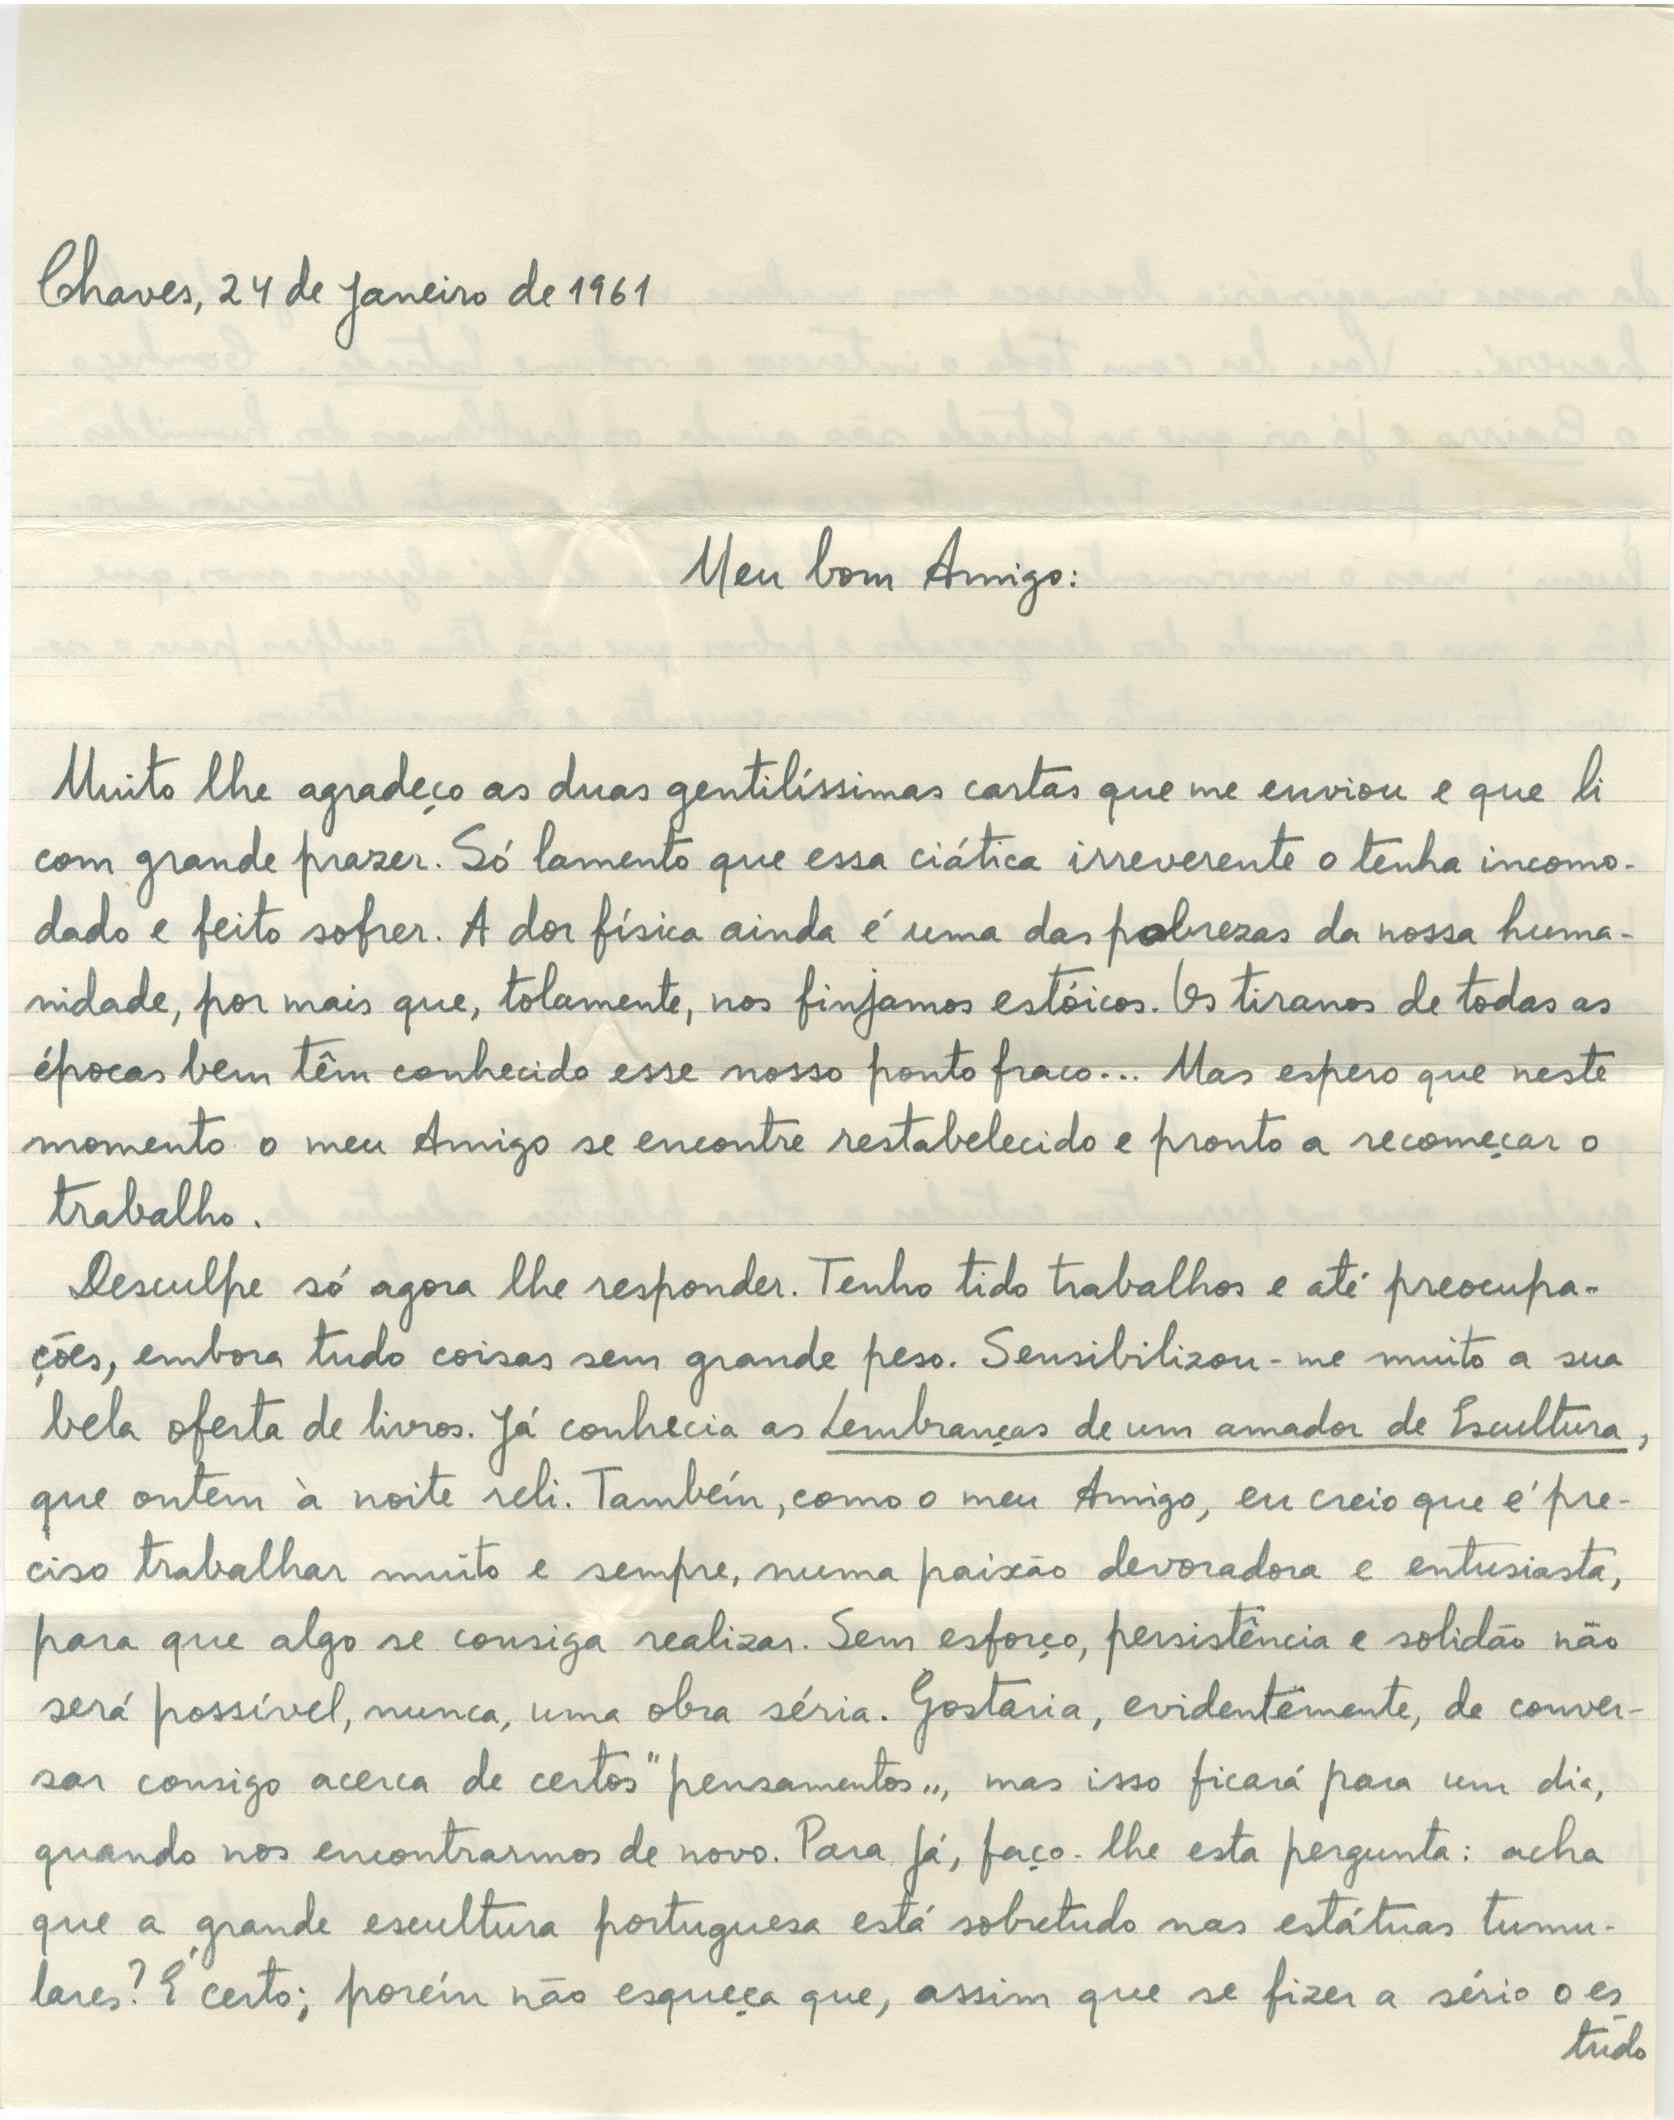 Chaves, 24 de Janeiro de 1961
Meu bom Amigo:
Muito lhe agradeço as duas gentilíssimas cartas que me enviou e que li
com grande prazer. Só lamento que essa ciática irreverente o tenha incomo-
dado e feito sofrer. A dor física ainda é uma das pobrezas da nossa huma-
nidade, por mais que, tolamente, nos finjamos estóicos. Os tiranos de todas as
épocas bem têm conhecido esse nosso ponto fraco... Mas espero que neste
momento o meu Amigo se encontre restabelecido e pronto a recomeçar o
trabalho.
Desculpe só agora lhe responder. Tenho tido trabalhos e até preocupa-
ções, embora tudo coisas sem grande peso. Sensibilizou-me muito a sua
bela oferta de livros. Já conhecia as Lembranças de um amador de Escultura,
que ontem à noite reli. Também, como o meu Amigo, eu creio que é pre-
ciso trabalhar muito e sempre, numa paixão devoradora e entusiasta,
para que algo se consiga realizar. Sem esforço, persistência e solidão não
será possível, nunca, uma obra séria. Gostaria, evidentemente, de conver-
sar consigo acerca de certos "pensamentos", mas isso ficará para um dia,
quando nos encontrarmos de novo. Para já, faço-lhe esta pergunta: acha
que a grande escultura portuguesa está sobretudo nas estátuas tumu-
lares? É certo; porém não esqueça que, assim que se fizer a sério o es-
tudo